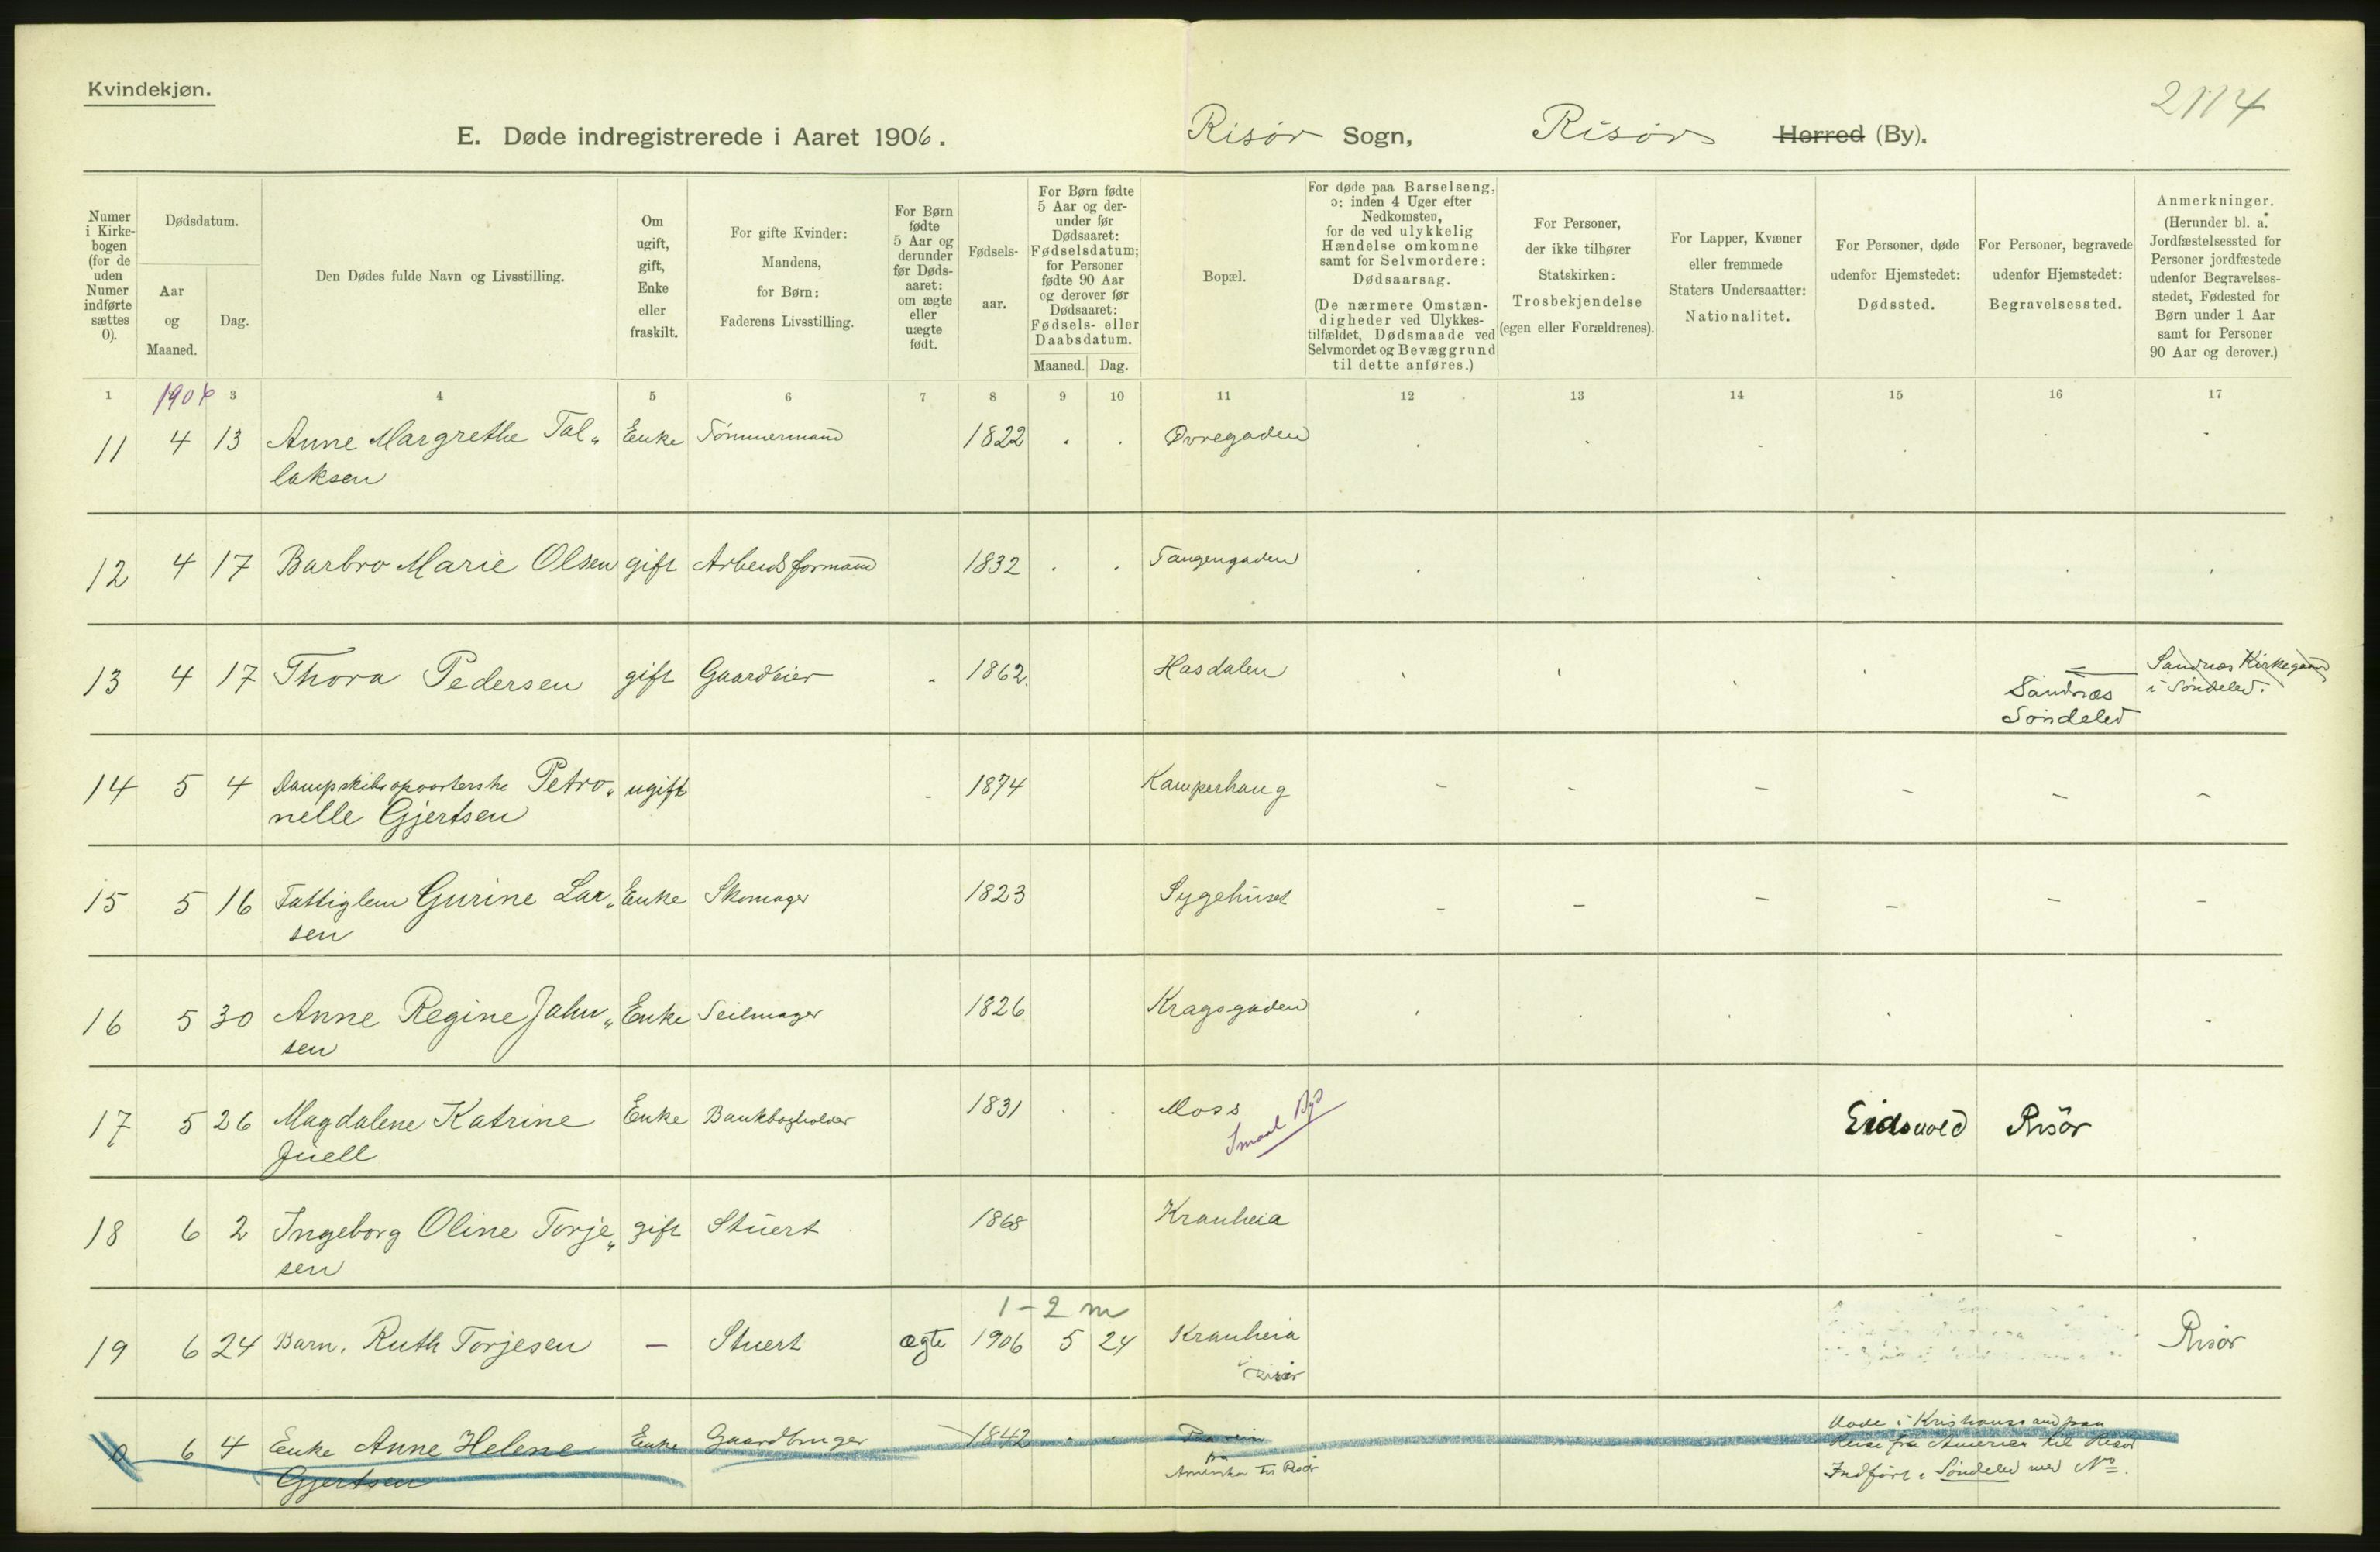 Kvindekjøn.
2114
E. Døde indregistrerede i Aaret 1906. Risør Sogn, Risør Herred (By).
Numer i Kirkebogen (for de uden Numer indførte sættes 0).
Dødsdatum.
Aar og Maaned.
Dag.
Den Dødes fulde Navn og Livsstilling.
Om ugift, gift, Enke eller fraskilt.
For gifte Kvinder: Mandens, for Børn: Faderens Livsstilling.
For Børn fødte 5 Aar og derunder før Døds-aaret: om ægte eller uægte født.
Fødsels-aar.
For Børn fødte 5 Aar og der-under før Dødsaaret: Fødselsdatum; for Personer fødte 90 Aar og derover før Dødsaaret: Fødsels- eller Daabsdatum.
Maaned. Dag.
Bopæl.
For døde paa Barselseng, ɔ: inden 4 Uger efter Nedkomsten, for de ved ulykkelig Hændelse omkomne samt for Selvmordere: Dødsaarsag.
(De nærmere Omstæn-digheder ved Ulykkes-tilfældet, Dødsmaade ved Selvmordet og Bevæggrund til dette anføres.)
For Personer, der ikke tilhører Statskirken: Trosbekjendelse (egen eller Forældrenes).
For Lapper, Kvæner eller fremmede Staters Undersaatter: Nationalitet.
For Personer, døde udenfor Hjemstedet: Dødssted.
For Personer, begravede udenfor Hjemstedet: Begravelsessted.
Anmerkninger. (Herunder bl. a. Jordfæstelsessted for Personer jordfæstede udenfor Begravelses-stedet, Fødested for Børn under 1 Aar samt for Personer 90 Aar og derover.)
1 1906 3 4 5 6 7 8 9 10 11 12 13 14 15 16 17
11 4 13 Anne Margrethe Tal„ Enke Tømmermand 1822 Øvregaden
laksen
12 4 17 Barbro Marie Olsen gift Arbeidsformand 1832 Tangengaden
13 4 17 Thora Pedersen gift Gaardeier 1862 Hasdalen Sandnæs Kirkegaard
Sandnæs i Søndeled.
Søndeled
14 5 4 Dampskibsopvarterske Petro„ ugift 1874 Kamperhaug
nelle Gjertsen
15 5 16 Fattiglem Gurine Lar„ Enke Skomager 1823 Sygehuset
sen
16 5 30 Anne Regine Jahn„ Enke Seilmager 1826 Kragsgaden
sen
17 5 26 Magdalene Katrine Enke Bankbogholder 1831 Moss Eidsvold Risör
Juell Smaal
18 6 2 Ingeborg Oline Torje„ gift Stuert 1868 Kranheia
sen
1 - 2 m
19 6 24 Barn, Ruth Torjesen - Stuert ægte 1906 5 24 Kranheia Risør
Risør
0 6 4 Enke Anne Helene Enke Gaardbruger 1842 Døde i Kristianssand paa
Gjertsen Reise fra Amerika til Risør
Amerika til Risör Indført i Søndeled med No.